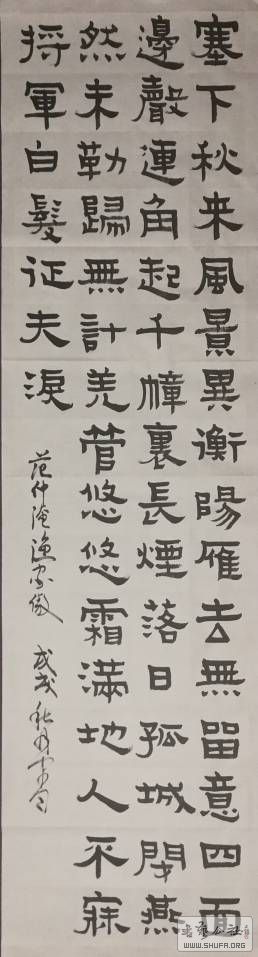 塞下秋来風景異衡陽雁去無留意四面
邊聲連角起千幛裏長煙落日孤城閉燕
然未勒歸無計羌管悠悠霜滿地人不寐
将軍白髮征夫淚
范仲淹漁家傲 戊戌秋月
WWW.SHUFA.ORG